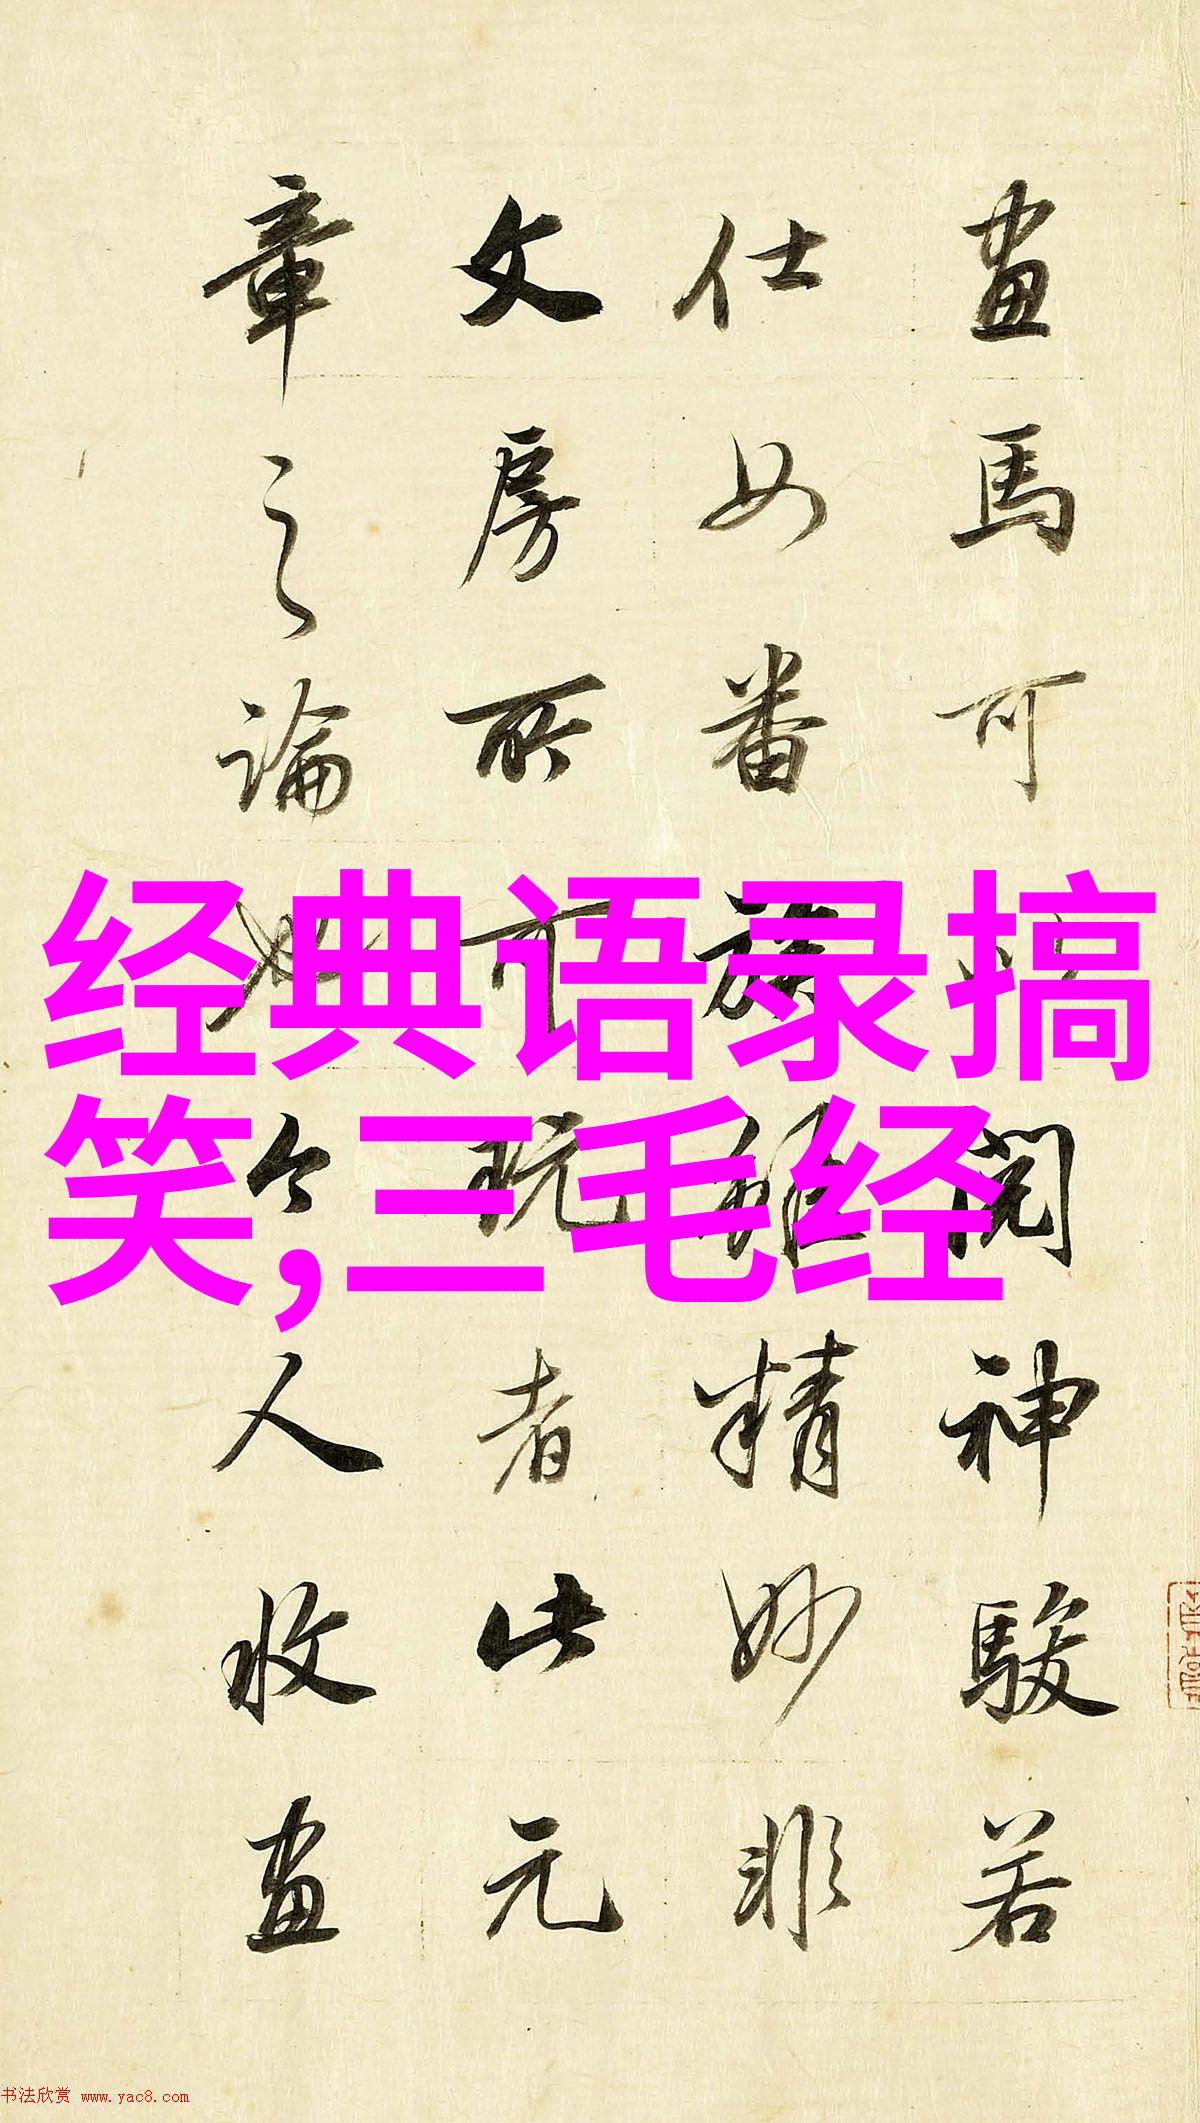 畫馬可閱神駿若
仕女番族雖精妙非
文房所可玩者此元
章之論今人收畫
经典语录搞
笑,三毛经
书法欣赏 www.yac8.com